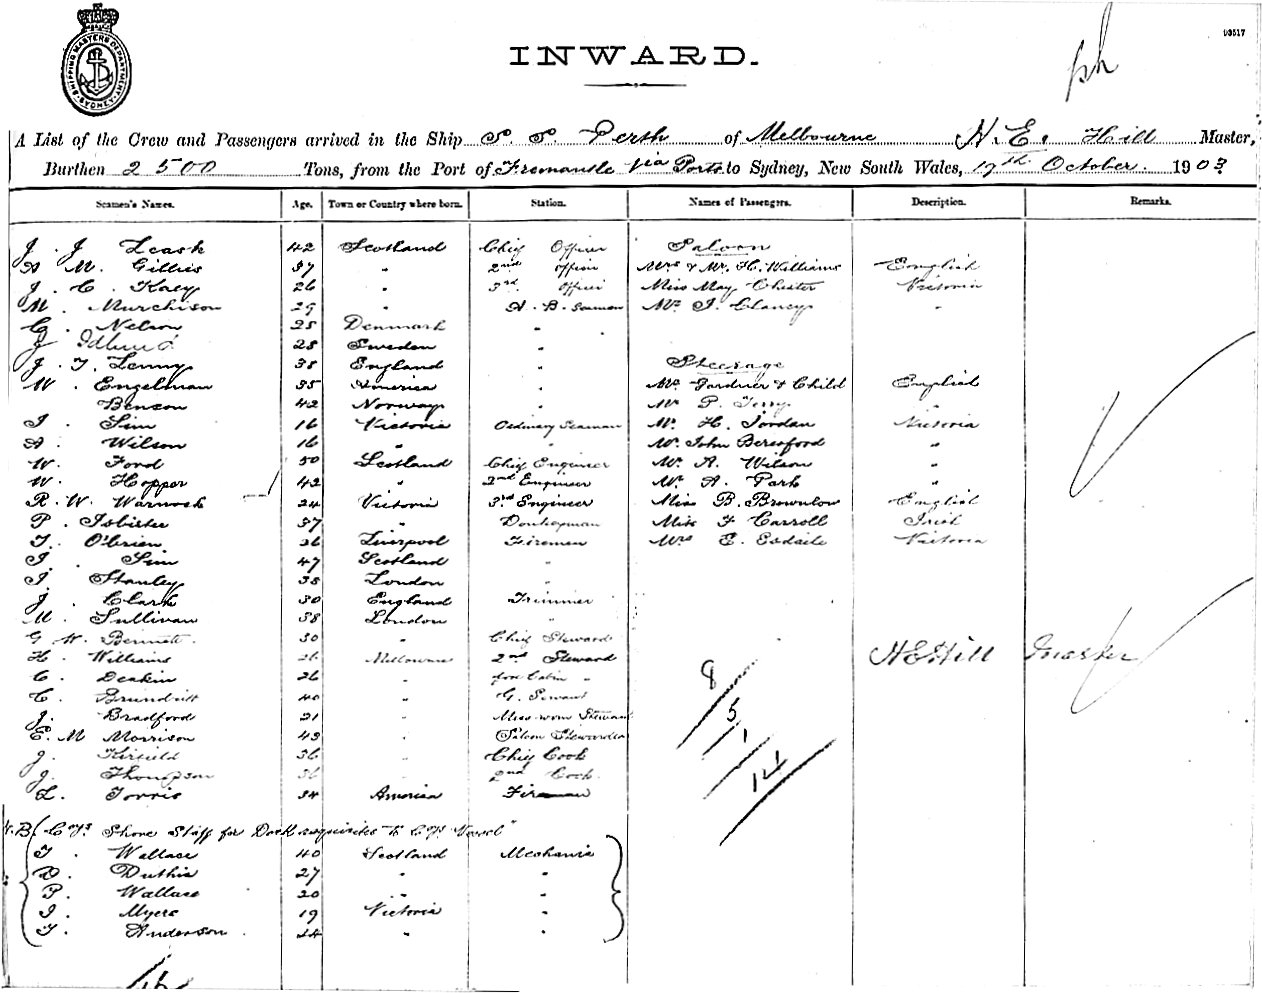 93517
SHIPPING MASTERS DEPARTMENT SYDNEY
INWARD.
A List of the Crew and Passengers arrived in the Ship S. S. Perth of Melbourne H. E. Hill Master,
Burthen 2500 Tons, from the Port of Fremantle via Ports to Sydney, New South Wales, 19th October. 1903
Seamen's Names. Age. Town or Country where born. Station. Names of Passengers. Description. Remarks.
J. J. Leask 42 Scotland Chief Officer Saloon
A M. Gillies 37 " 2nd officer Mrs & Mr. H. Williams English
J. C. Kaey 26 " 3rd. officer Miss May Chester Victoria
M. Murchison 29 " A. B. Seaman Mr. J. Clancy "
C. Nelson 25 Denmark "
J 28 Sweden "
J. T. Lenny 38 England " Steerage
W. Engelman 35 America " Mr. Gardner & Child English
Benson 42 Norway " Mr P. Terry "
J. Sim 16 Victoria Ordinary Seaman Mr. H. Jordan Victoria
A. Wilson 16 " " Mr. John Beresford "
W. Ford 50 Scotland Chief Engineer Mr. A. Wilson "
W. Hopper 42 " 2nd Engineer Mr. A. Park "
R. W. Warnock 24 Victoria 3rd Engineer Miss B. Brownlow English
P. Isbister 37 " Donkeyman Miss F Carroll Irish
T. O'Brien 26 Liverpool Firemen Mrs E. Esdaile Victoria
J. Sim 47 Scotland "
J. Stanley 38 London "
J. Clark 30 England Trimmer
M. Sullivan 38 London "
G W. Bennett 30 " Chief Steward
H. Williams 26 Melbourne 2nd Steward H E Hill Master
C. Deakin 26 " fore Cabin " 8
C. Brundritt 40 " G. Servant
J. Bradford 21 " Mess room Steward 5
E. M Morrison 43 " Saloon Stewardess 1
J. Fifield 36 " Chief Cook
J. Thompson 36 " 2nd Cook 14
L. Torris 34 America Fireman
N.B. Coys. Shore Staff for Dock requisites to Coys Vessel"
T. Wallace 40 Scotland Mechanic
D. Duthie 27 " "
P. Wallace 20 " "
J. Myers 19 Victoria "
T. Anderson 24 " "